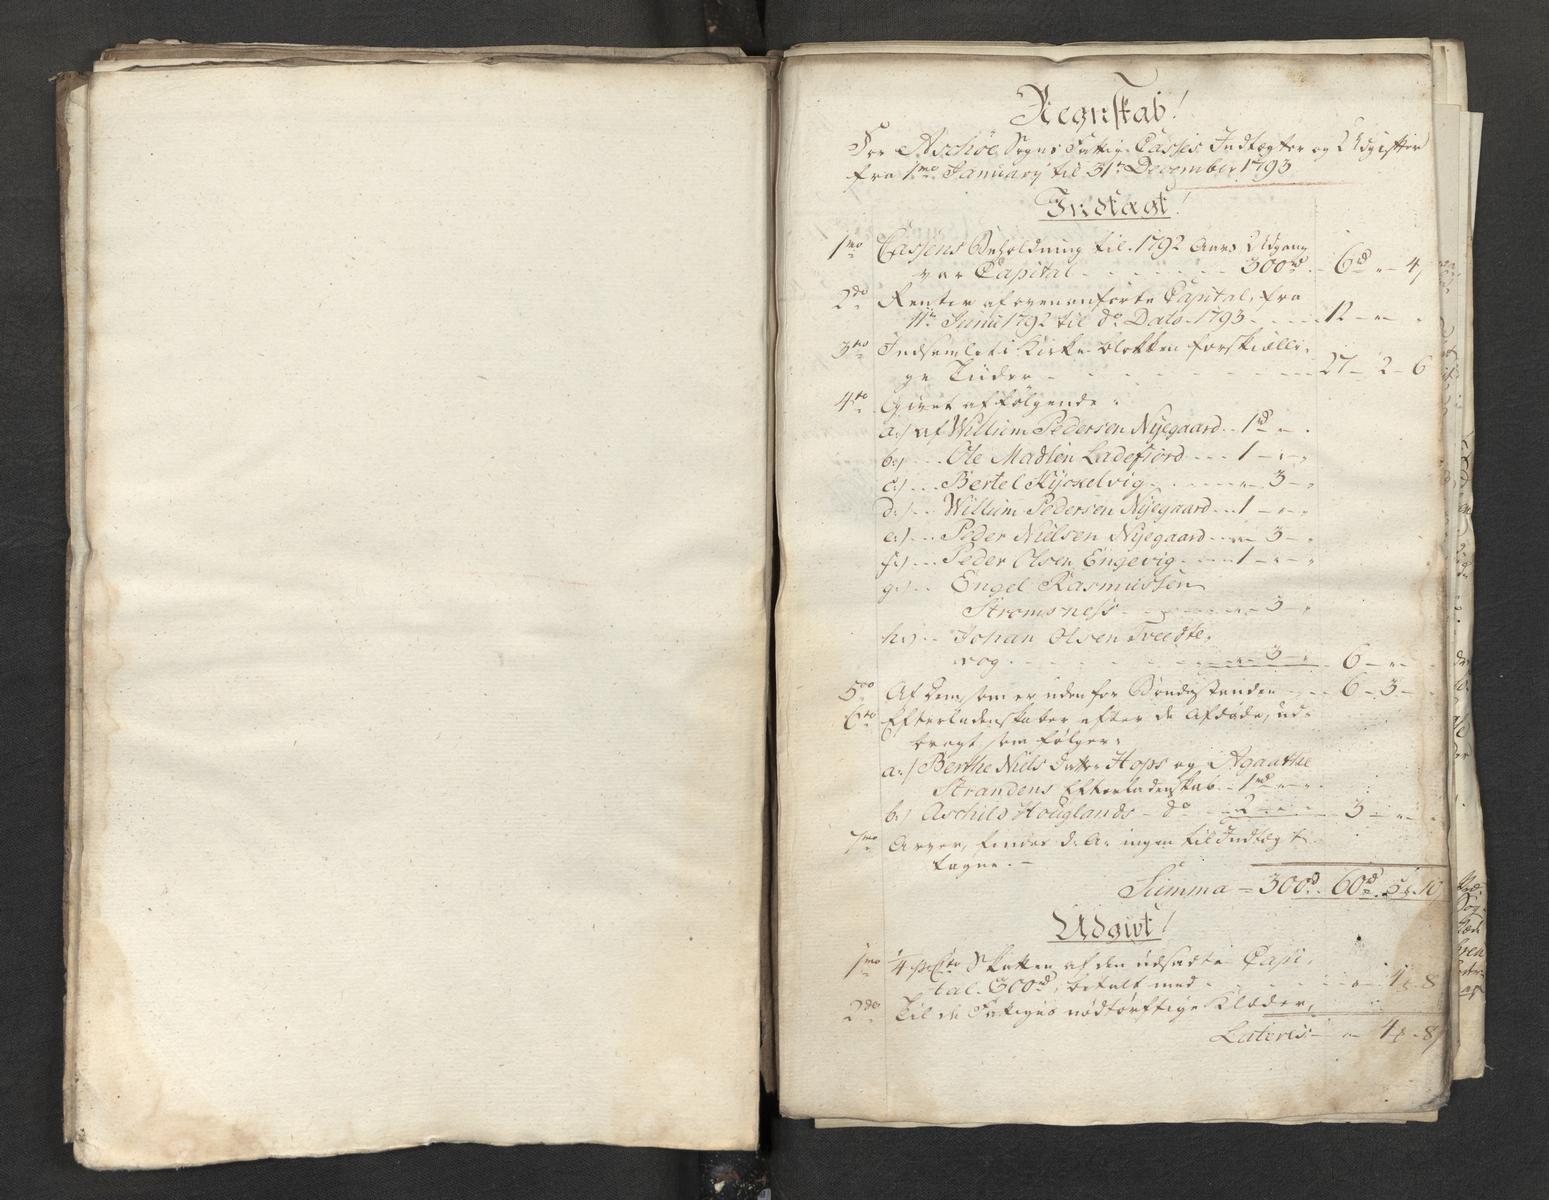 Regnskab!
For Aschøe Sogns Fattig Casses Indtægter og Udgifter
fra 1mo January til 31te December 1793
Indtægt!
1mo Cassens Beholdning til 1792 Aars Udgang
var Capital - - - 300rd - 6rd " - 4
2do Renter af ovenanførte Capital, fra
11te Junii 1792 til do Dato 1793 - - - 12 - " -
3tio Indsamlet i Kirke blokken forskiælli-
ge Tiider - - - 27 - 2 - 6
4to Givet af følgende:
a:) af Willum Pedersen Nyegaard - 1rd - " -
b:) - - Ole Madsen Ladefiord - - - 1 - " - "
c:) - - Bertel Kyckelvig - - - " - 3 - "
d:) - - Willum Pedersen Nyegaard - - 1 - " - "
e:) - - Peder Nielsen Nyegaard - - " - 3 - "
f:) - - Peder Olsen Engevig - - - 1 - " - "
g:) - - Engel Rasmussen
Stromsness - - - " - 3 - "
h:) - - Johan Olsen Tveedte-
rog - - - " - 3 - " 6 - " -
5to Af dem, som er uden for Bondestanden - - - 6 - 3 -
6to Efterladenskaber efter de Afdøde, ud-
bragt som følger:
a:) Berthe Niels Datter Hops og Agaathe
Strandens Efterladenskab - 1rd - " - "
b:) Aschilds Houglands - do - - 2 - " - 3 - " -
7mo Arver, findes d: A: ingen til Indtægt
tagne. -
Summa = 300rd - 60rd - 5 - 10
Udgivt!
1mo 1/4 pCto Skatten af den udsadte Capi-
tal 300rd, betalt med - - - " - 4 - 8
2do Til de Fattiges nødtørftige Klæder,
Lateris - " - 4 - 8